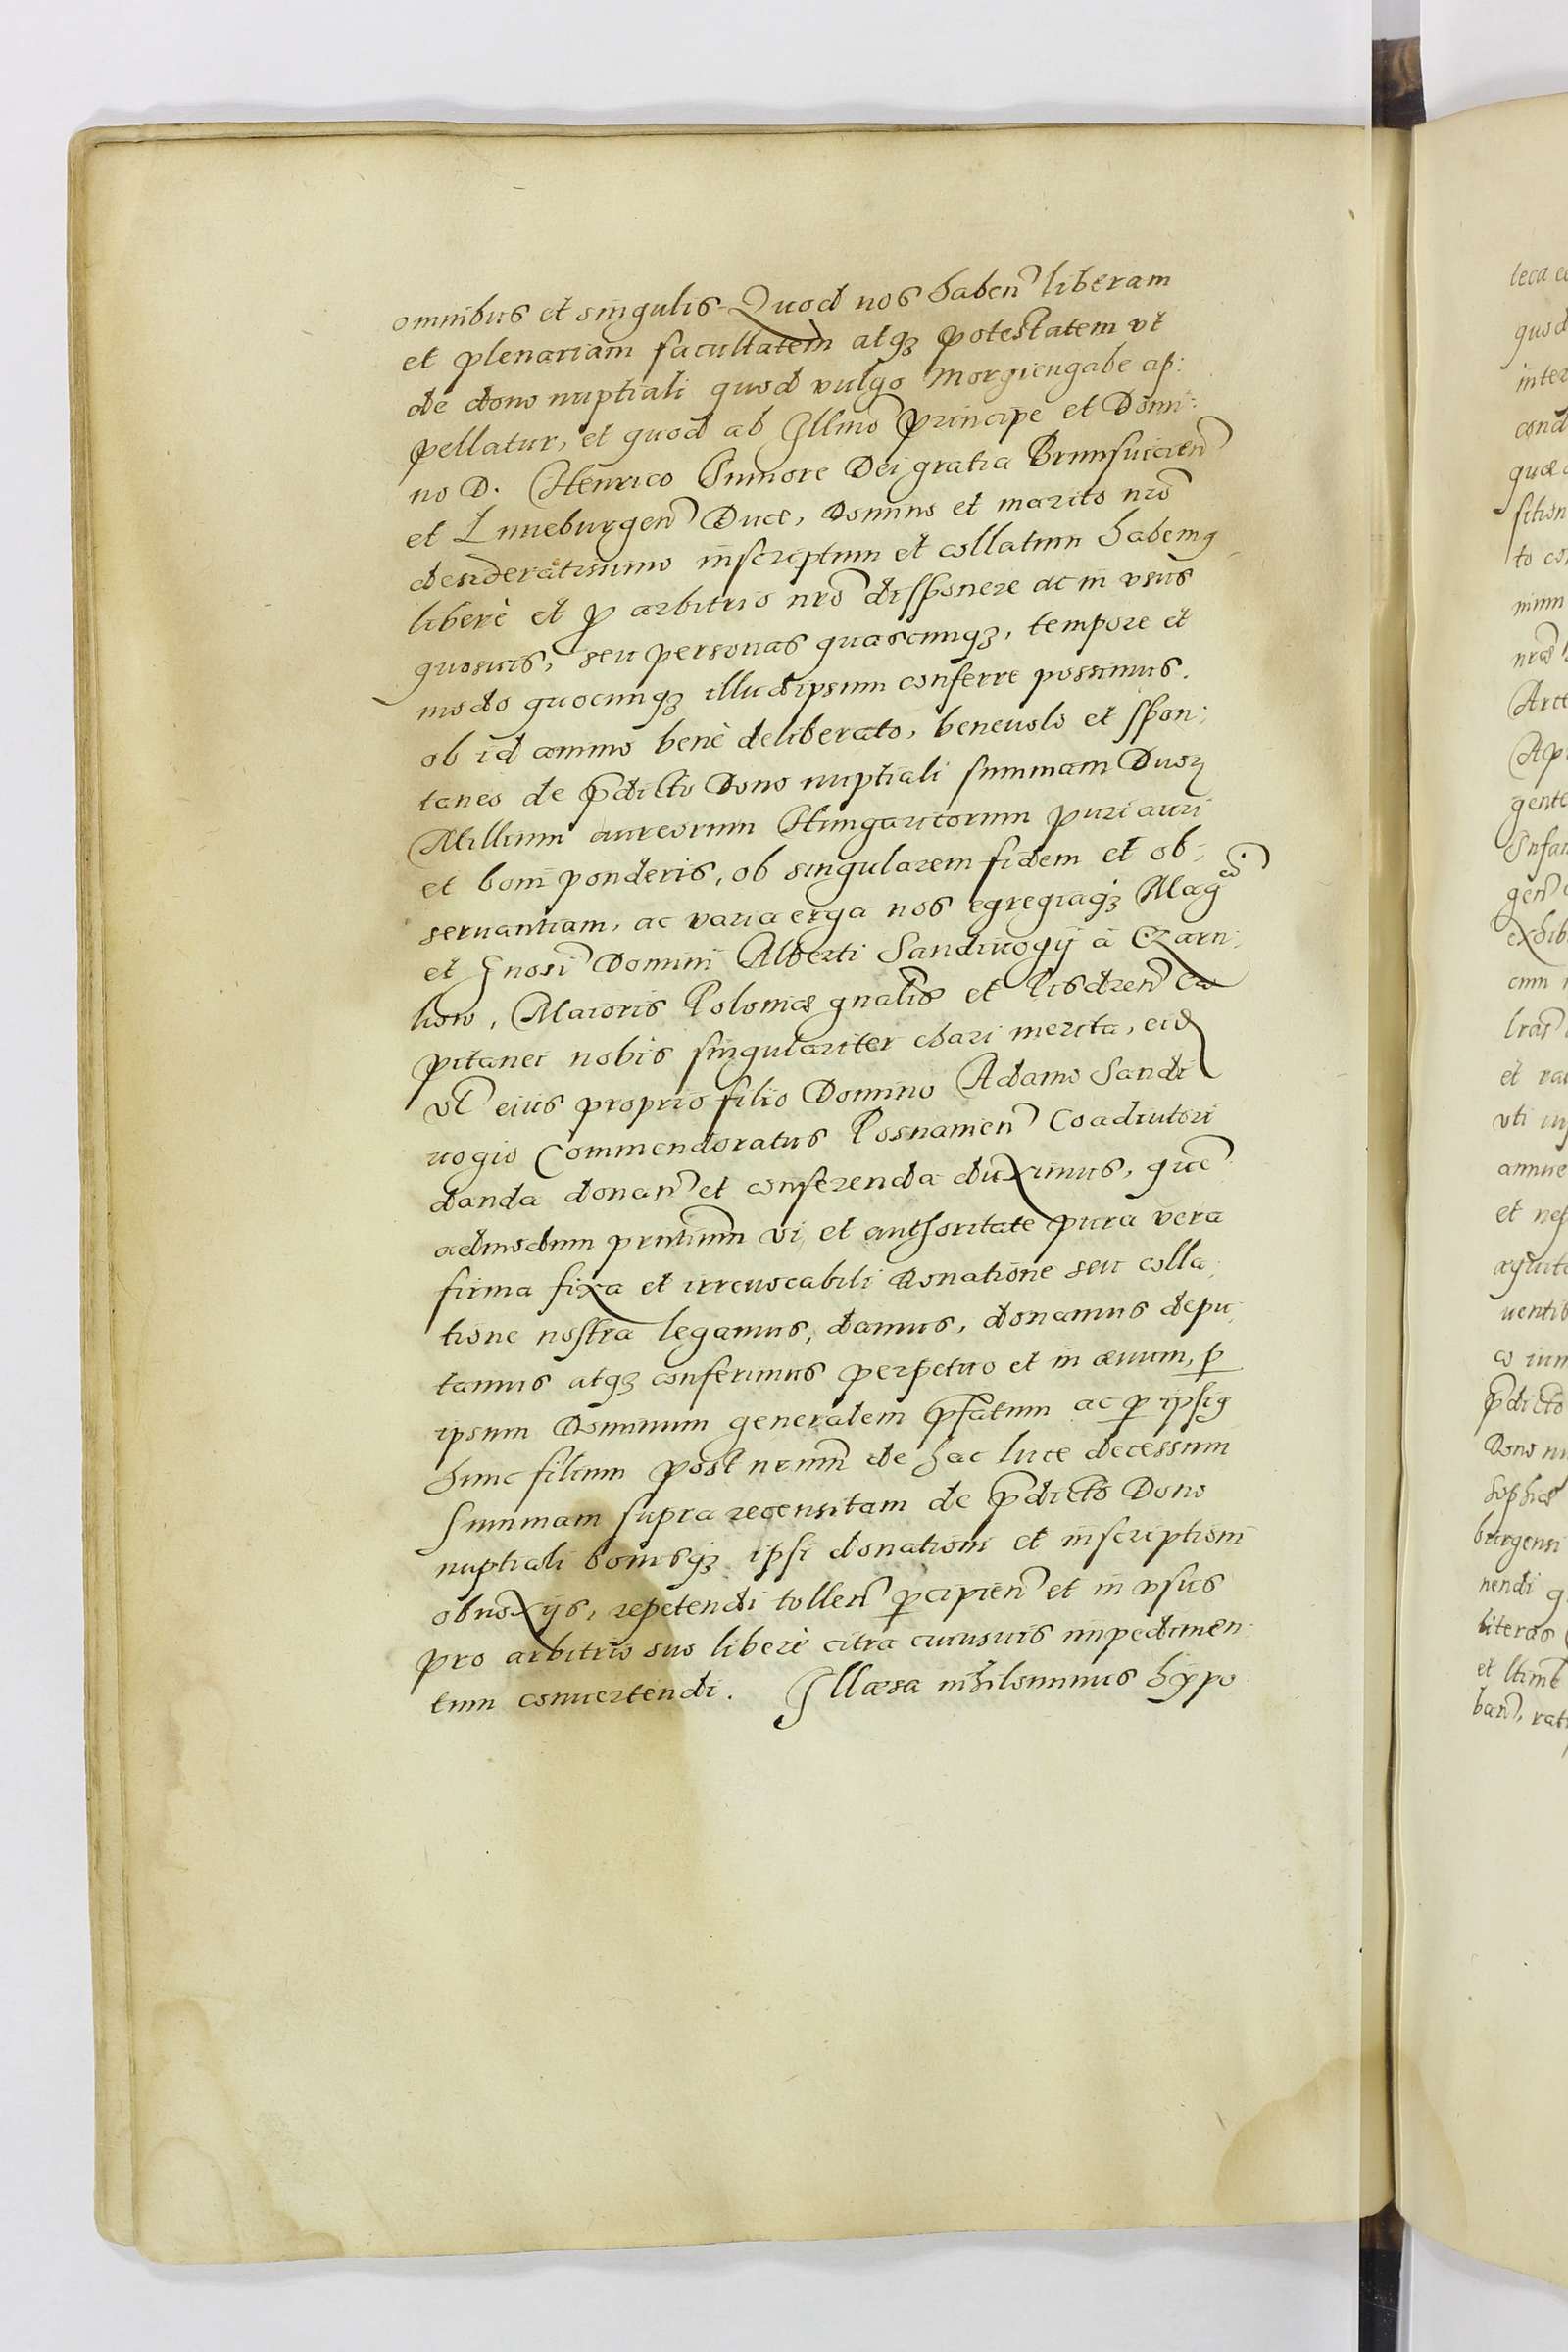 omnibus et singulis. Quod nos haben̄ liberam
et plenariam facultatem atqꝫ potestatem vt
de dono nuptiali quod vulgo Morgiengabe ap:
pellatur, et quod ab Illmo Principe et Domi:
no D. Henrico Iuniore Dei gratia Brunsuicien̄
et Luneburgen̄ Duce, Domino et marito nr̄o
desideratissimo inscriptum et collatum habemꝰ
liberè et ꝓ arbitrio nr̄o disponere ac in vsus
quosuis, seu personas quascunqꝫ, tempore et
modo quocunqꝫ illudipsum conferre possimus.
ob id animo benè deliberato, beneuolo et spon:
taneo de p̄dicto Dono nuptiali summam Duoꝝ
Millium aureorum Hungaricorum puri auri
et boni ponderis, ob singularem fidem et ob:
seruantiam, ac varia erga nos egregiaqꝫ Magci
et Gnosi Domini Alberti Sandiuogij à Czarn:
kow, Maioris Poloniæ gn̄alis et Pisdren̄ Ca
pitanei nobis singulariter chari merita, eid
vel eius proprio filio Domino Adamo Sandi
uogio Commendoratus Posnanien̄ Coadiutori
danda donan̄ et conferenda duximus, quē
admodum pn̄tium vi et authoritate pura vera
firma fixa et irreuocabili Donatione seu colla:
tione nostra legamus, damus, donamus depu:
tamus atqꝫ conferimus perpetuo et in æuum, ꝑ
ipsum Dominum generalem p̄fatum ac ꝑ ipsiꝰ
hunc filium post nr̄um de hac luce decessum
summam supra recensitam de p̄dicto Dono
nuptiali bonisqꝫ ipsi donationi et inscriptioni
obnoxijs, repetendi tollen̄ ꝑcipien̄ et in vsus
pro arbitrio suo liberè citra cuiusuis impedimen
tum conuertendi. Illæsa nihilominus hypo
teca
quod
inter
cond
quæ
sition
to
Arce
gente
exhib
et
vti
et
p̄dicto
Dono
Sophiæ
burgensi
nendi
literas
et